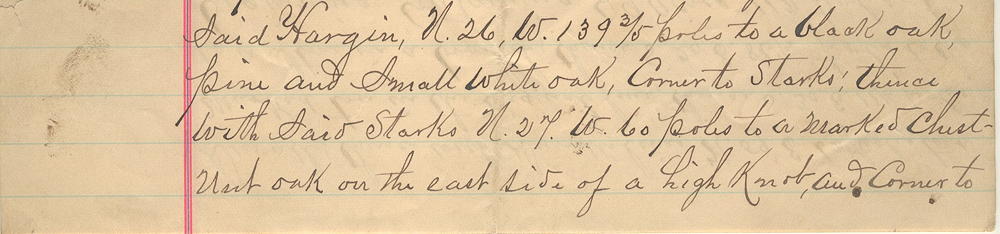 Said Hargin, N. 26, W. 139 3/5 poles to a black oak,
pine and Small White oak, Corner to Starks; thence
With Said Starks N. 27. W. 60 poles to a Marked Chest-
Nut oak on the east side of a high Knob, and Corner to